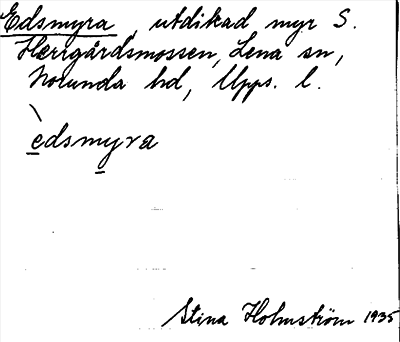 Edsmyra, utdikad myr S.
Herrgårdsmossen, Lena sn,
Norunda hd, Upps. l.
edsmyra
Stina Holmström 1935